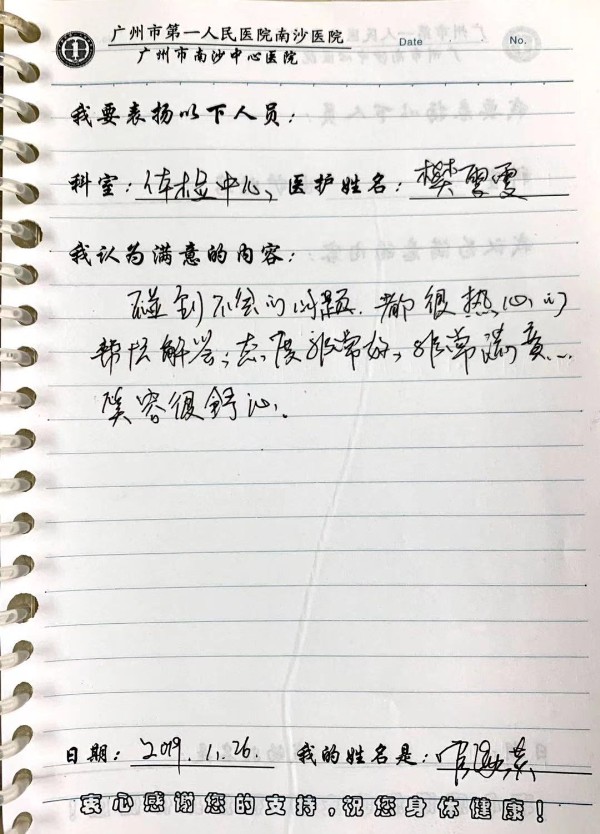 广州市第一人民医院南沙医院
广州市南沙中心医院
Date . . No.
我要表扬以下人员：
科室：体检中心、医护姓名：樊雪雯
我认为满意的内容：
碰到不会的问题．都很热心的
帮忙解答；态度非常好、非常满意…
笑容很舒心。
日期：2019.1.26. 我的姓名是：
衷心感谢您的支持，祝您身体健康！